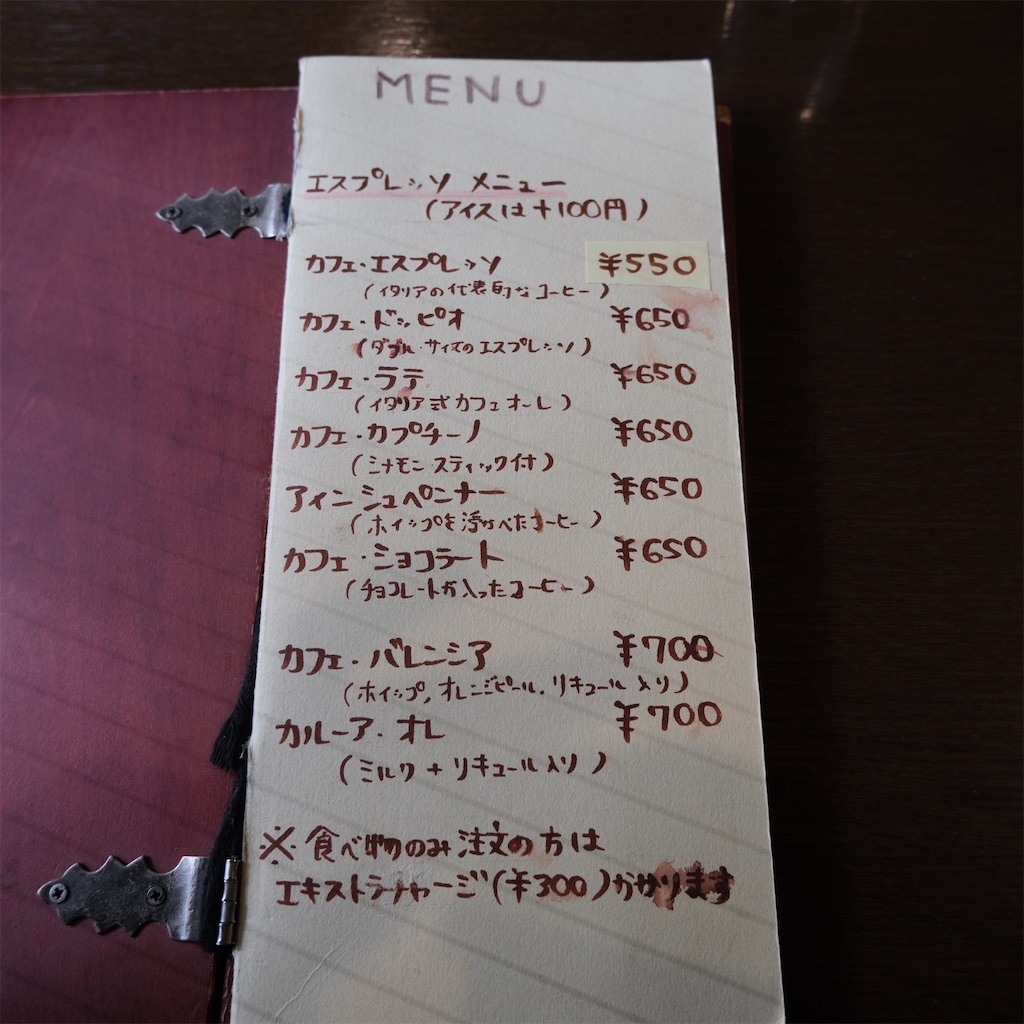 MENU
エスプレッソ メニュー
(アイスは+100円)
カフェ・エスプレッソ ¥550
(イタリアの代表的なコーヒー)
カフェ・ドッピオ ¥650
(ダブル・サイズのエスプレッソ)
カフェ・ラテ ¥650
(イタリア式カフェオーレ)
カフェ・カプチーノ ¥650
(ミナモン スティック付)
アインシュペンナー ¥650
(ホイップを浮かべたコーヒー)
カフェ・ショコラート ¥650
(チョコレートが入ったコーヒー)
カフェ・バレンシア ¥700
(ホイップ,オレンジピール,リキュール入り)
カルーア・オレ ¥700
(ミルク+リキュール入り)
※食べ物のみ注文の方は
エキストラチャージ(¥300)かかります